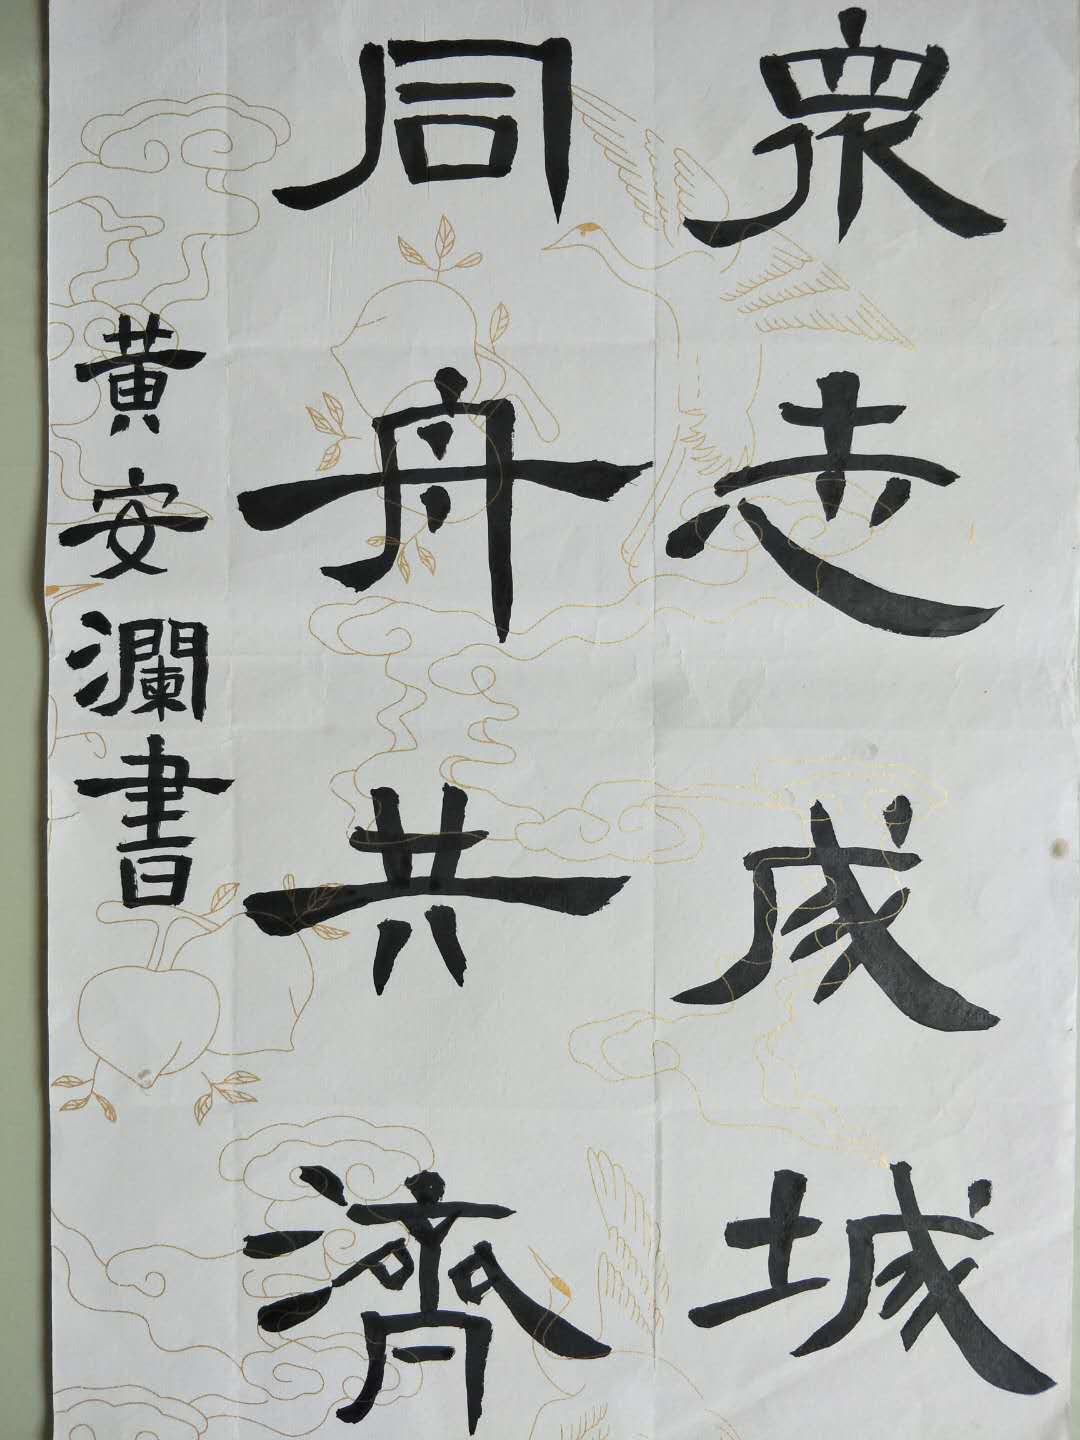 眾志成城
同舟共濟
黄安瀾書